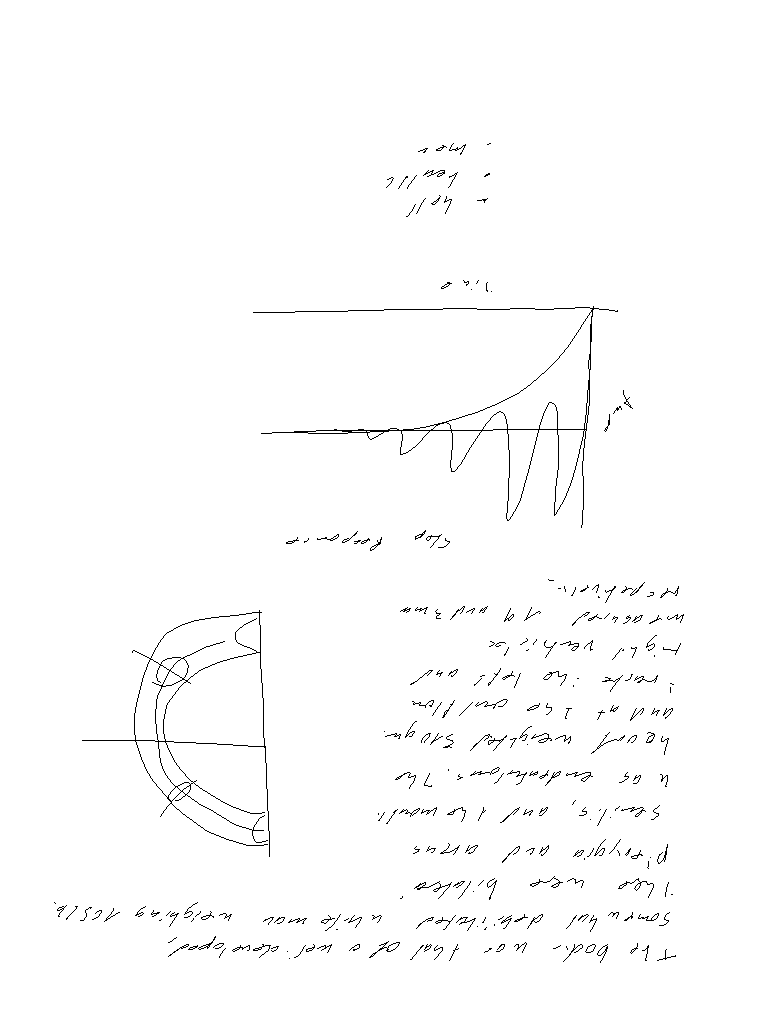 The body was that of a well developed,
somewhat debilitated white man weighing 165 lb.
There were bilateral
pterygia and arcus
senilis, and the mouth
was endentulous. The
heart weighted 510 gm
and at the outflow
tracts the left and
right ventricle
measured 19 and 3 mm
respectively.
Step Response
Amp
Time